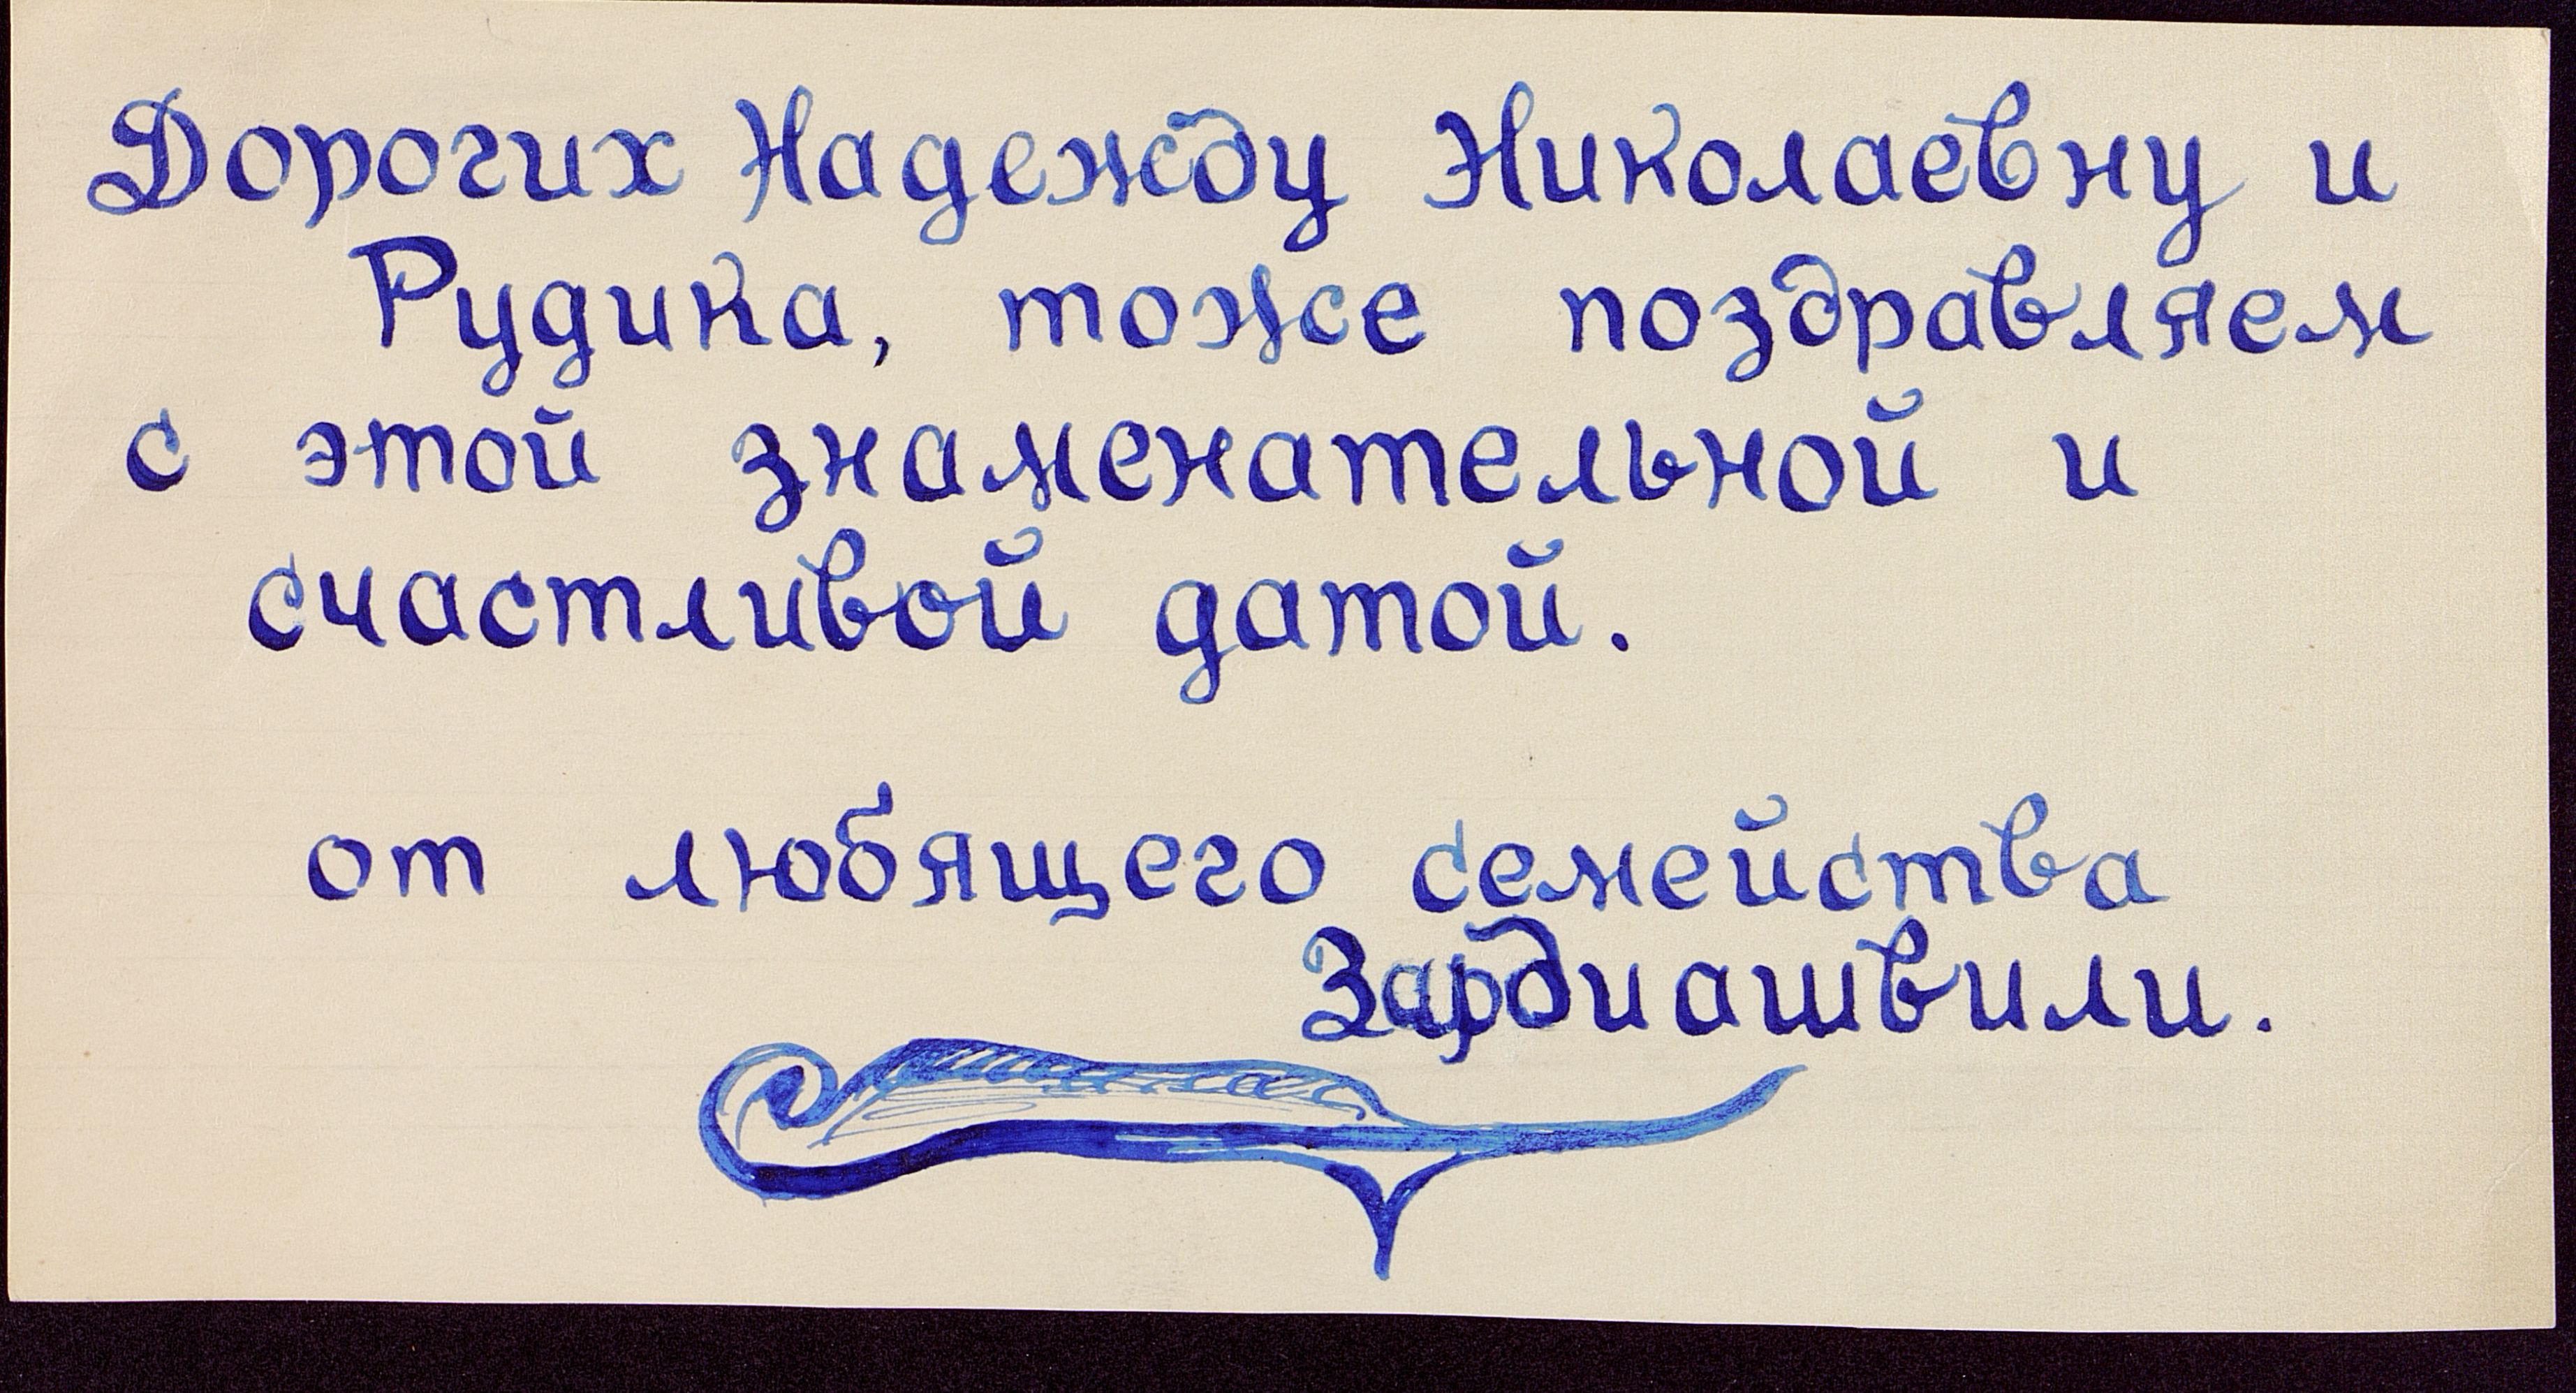 Дорогих Надежду Николаевну и
Рудика, тоже поздравляем
с этой знаменательной и
счастливой датой.
от любящего семейства
Зардиашвили.